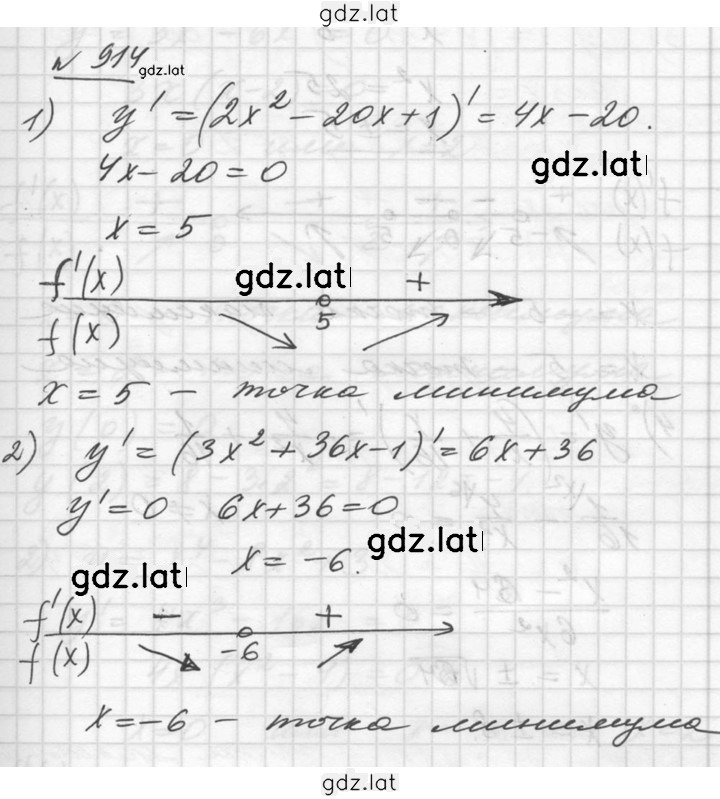 gdz.lat
№ 914
gdz.lat
1) y' = (2x² - 20x + 1)' = 4x - 20.
4x - 20 = 0
gdz.lat
x = 5
f'(x) gdz.lat +
5
f(x)
x = 5 - точка минимума
2) y' = (3x² + 36x - 1)' = 6x + 36
y' = 0 6x + 36 = 0
gdz.lat
x = -6.
gdz.lat
f'(x) - +
-6
f(x)
x = -6 - точка минимума
gdz.lat